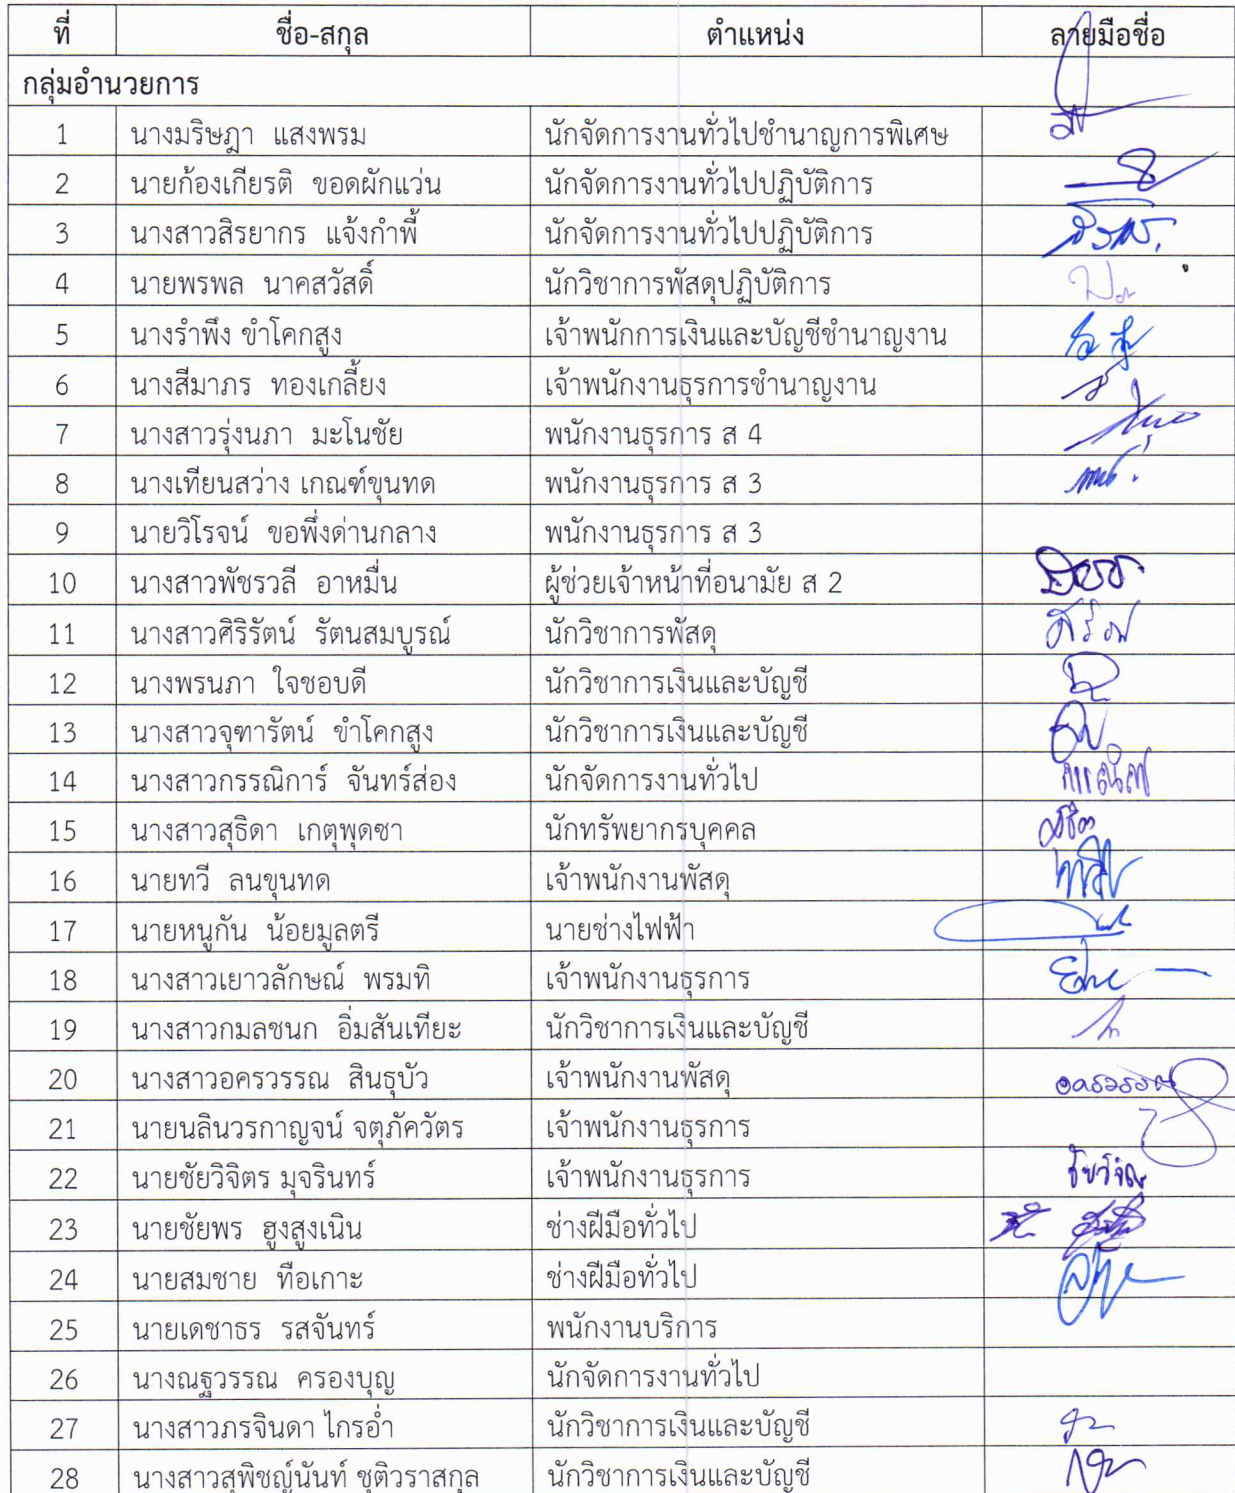 ที่ ชื่อ-สกุล ตำแหน่ง ลายมือชื่อ
กลุ่มอำนวยการ
1 นางมริษฎา แสงพรม นักจัดการงานทั่วไปชำนาญการพิเศษ
2 นายก้องเกียรติ ขอดผักแว่น นักจัดการงานทั่วไปปฏิบัติการ
3 นางสาวสิรยากร แจ้งกำพี้ นักจัดการงานทั่วไปปฏิบัติการ
4 นายพรพล นาคสวัสดิ์ นักวิชาการพัสดุปฏิบัติการ
5 นางรำพึง ขำโคกสูง เจ้าพนักการเงินและบัญชีชำนาญงาน
6 นางสีมาภร ทองเกลี้ยง เจ้าพนักงานธุรการชำนาญงาน
7 นางสาวรุ่งนภา มะโนชัย พนักงานธุรการ ส 4
8 นางเทียนสว่าง เกณฑ์ขุนทด พนักงานธุรการ ส 3
9 นายวิโรจน์ ขอพึ่งด่านกลาง พนักงานธุรการ ส 3
10 นางสาวพัชรวลี อาหมื่น ผู้ช่วยเจ้าหน้าที่อนามัย ส 2
11 นางสาวศิริรัตน์ รัตนสมบูรณ์ นักวิชาการพัสดุ
12 นางพรนภา ใจชอบดี นักวิชาการเงินและบัญชี
13 นางสาวจุฑารัตน์ ขำโคกสูง นักวิชาการเงินและบัญชี
14 นางสาวกรรณิการ์ จันทร์ส่อง นักจัดการงานทั่วไป
15 นางสาวสุธิดา เกตุพุดซา นักทรัพยากรบุคคล
16 นายทวี ลนขุนทด เจ้าพนักงานพัสดุ
17 นายหนูกัน น้อยมูลตรี นายช่างไฟฟ้า
18 นางสาวเยาวลักษณ์ พรมทิ เจ้าพนักงานธุรการ
19 นางสาวกมลชนก อิ่มสันเทียะ นักวิชาการเงินและบัญชี
20 นางสาวอครวรรณ สินธุบัว เจ้าพนักงานพัสดุ อครวรรณ
21 นายนลินวรกาญจน์ จตุภัควัตร เจ้าพนักงานธุรการ
22 นายชัยวิจิตร มุจรินทร์ เจ้าพนักงานธุรการ ชัยวิจิตร
23 นายชัยพร ฮูงสูงเนิน ช่างฝีมือทั่วไป
24 นายสมชาย ทือเกาะ ช่างฝีมือทั่วไป
25 นายเดชาธร รสจันทร์ พนักงานบริการ
26 นางณฐวรรณ ครองบุญ นักจัดการงานทั่วไป
27 นางสาวภรจินดา ไกรอ่ำ นักวิชาการเงินและบัญชี
28 นางสาวสุพิชญ์นันท์ ชุติวราสกุล นักวิชาการเงินและบัญชี